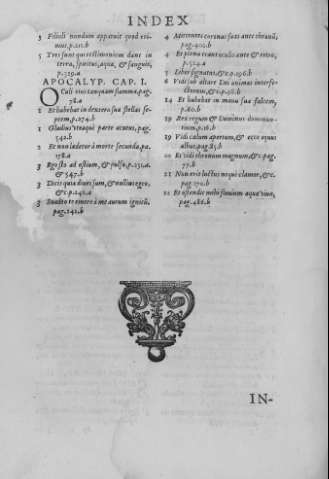 INDEX
3 Filioli nondum apparuit quod erimus,
mus, p.211.b
5 Tres sunt qui testimonium dant in
terra, spiritus, aqua, & sanguis,
p.329.a
APOCALYP. CAP. I.
OCuli eius tanquam flamma, pag.
78.a
1 Et habebat in dextera sua stellas septem
p.274.b
1 Gladius utraque parte acutus, pag.
342.b
2 Et non lædetur à morte secunda, pa.
178.a
3 Ego sto ad ostium, & pulso, p.231.a.
& 547.b
3 Dicis quia dives sum, & nullius egeo,
& c p.140.a
3 Suadeo te emere à me aurum ignitū,
pag.242.b
4 Mittentes coronas suas ante thronū,
pag.402.b
4 Et plena erant oculis ante & retro,
p.524.a
5 Liber signatus, & c p.296.b
6 Vidi sub altare Dei animas interfectorum,
& c p.28.b
14 Et habebat in manu sua falcem,
p.80.b
19 Rex regum & Dominus dominantium,
p.16.b
19 Vidi cælum apertum, & ecce equus
albus, pag.85.b
20 Et vidi thronum magnum, & c pag.
77.b
21 Non erit luctus neque clamor, & c.
pag.170.b
22 Et ostendit mihi fluvium aquæ vivæ,
pag.486.b
IN-